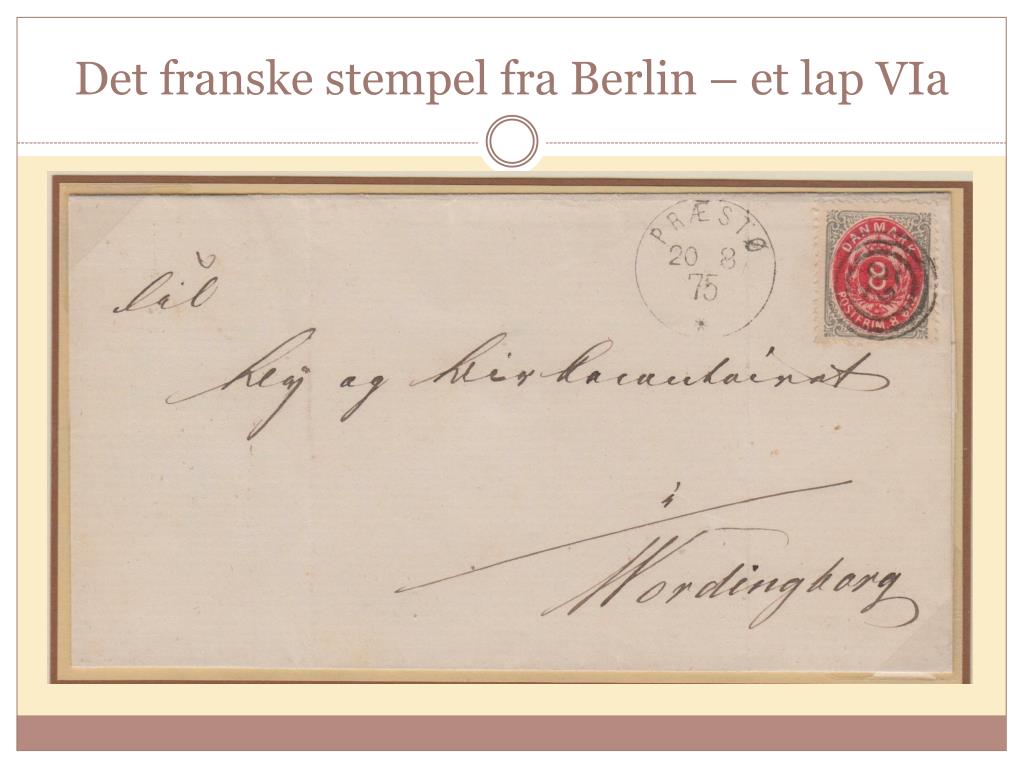 Det franske stempel fra Berlin – et lap VIa
PRÆSTØ
20 8
75
*
DANMARK
8
POSTFRIM. 8 
til
By og Birkecontoiret
i
Wordingborg